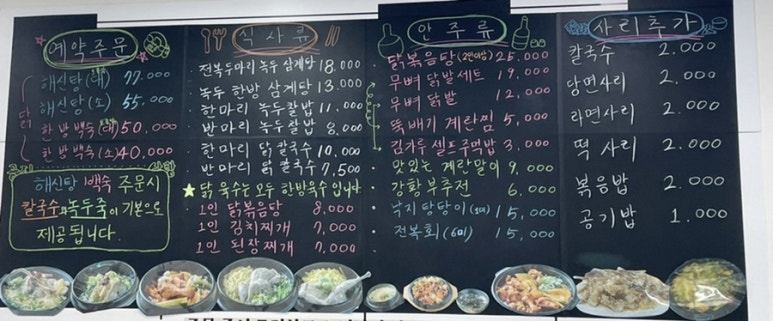 예약주문
닭
해신탕(대) 77.000
해신탕(소) 55.000
한방백숙(대) 50.000
한방백숙(소) 40.000
해신탕 백숙 주문시
칼국수와 녹두죽이 기본으로
제공됩니다.
식사류
전복두마리 녹두 삼계탕 18.000
녹두 한방 삼계탕 13.000
한마리 녹두찰밥 11.000
반마리 녹두찰밥 8.000
한마리 닭 칼국수 10.000
반마리 닭 칼국수 7.500
★닭 육수는 모두 한방육수 입니다
1인 닭볶음탕 8.000
1인 김치찌개 7.000
1인 된장찌개 7.000
안주류
닭볶음탕(2인이상) 25.000
무뼈 닭발세트 19.000
무뼈 닭발 12.000
뚝배기 계란찜 5.000
김가루 셀프주먹밥 3.000
맛있는 계란말이 9.000
강황 부추전 6.000
낙지 탕탕이 15.000
전복회(6미) 15.000
사리추가
칼국수 2.000
당면사리 2.000
라면사리 2.000
떡 사리 2.000
볶음밥 2.000
공기밥 1.000